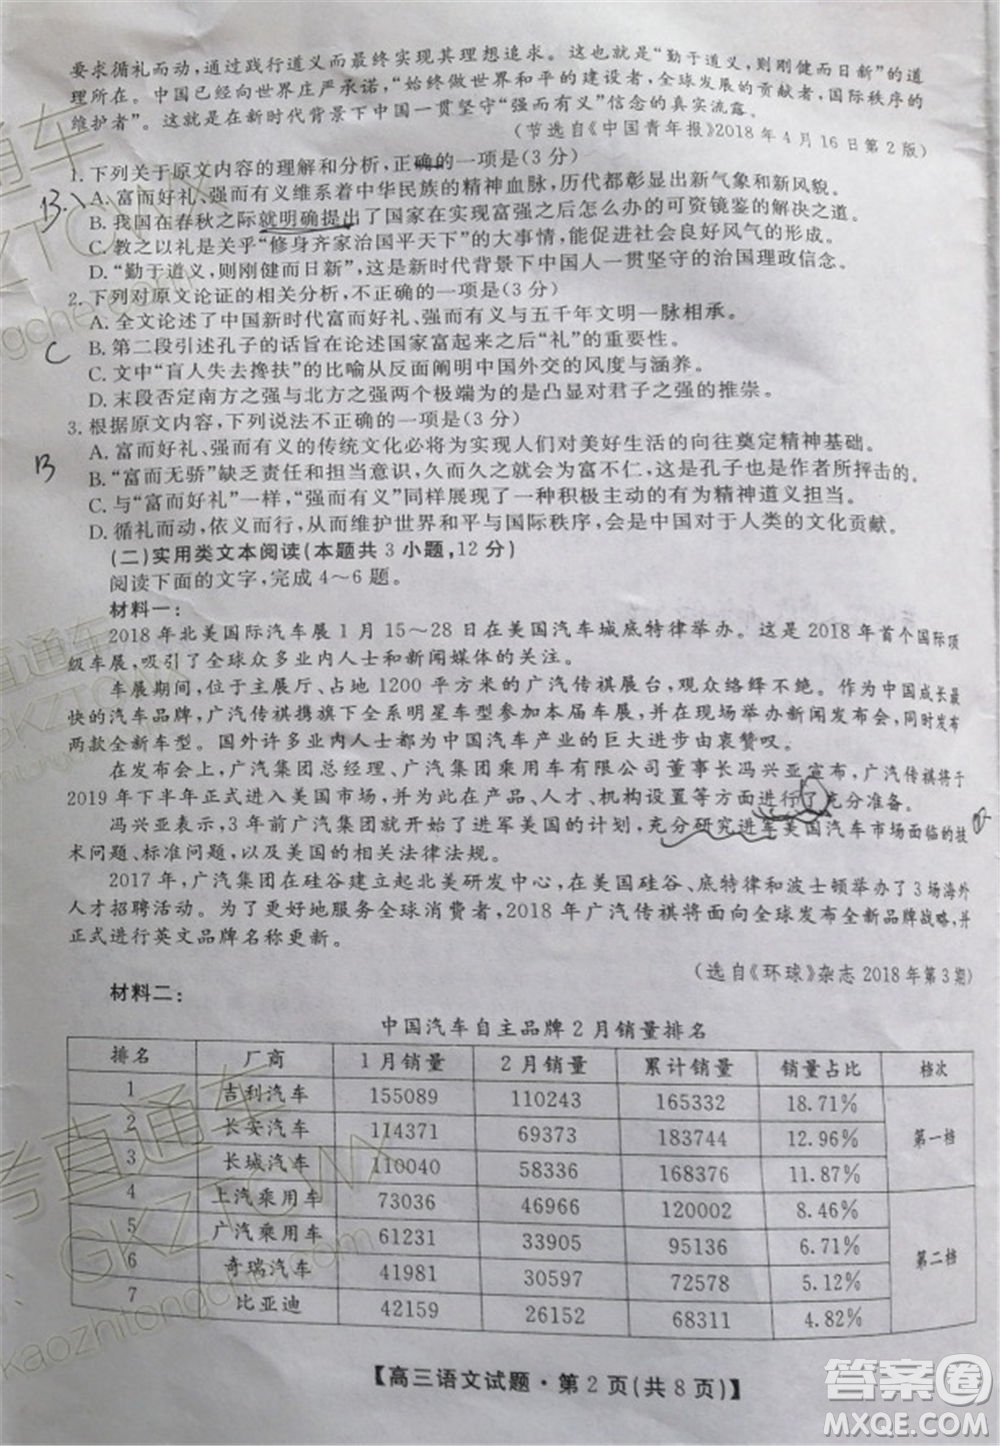 要求循礼而动，通过践行道义而最终实现其理想追求。这也就是“勤于道义，则刚健而日新”的道
理所在。中国已经向世界庄严承诺，“始终做世界和平的建设者，全球发展的贡献者，国际秩序的
维护者”。这就是在新时代背景下中国一贯坚守“强而有义”信念的真实流露。
(节选自《中国青年报》2018年4月16日第2版)
1.下列关于原文内容的理解和分析，正确的一项是(3分)
B.
A.富而好礼、强而有义维系着中华民族的精神血脉，历代都显示出新气象和新风貌。
B.我国在春秋之际就明确提出了国家在富强起来之后怎么办的可资镜鉴的解决之道。
C.教之以礼是关乎“修身齐家治国平天下”的大事情，能促进社会良好风气的形成。
D.“勤于道义，则刚健而日新”，这是新时代背景下中国人一贯坚守的治国理政信念。
2.下列对原文论证的相关分析，不正确的一项是(3分)
A.全文论述了中国新时代富而好礼、强而有义与五千年文明一脉相承。
C
B.第二段引述孔子的话旨在论述国家富起来之后“礼”的重要性。
C.文中“盲人失去搀扶”的比喻从反面阐明中国外交的风度与涵养。
D.末段否定南方之强与北方之强的两个极端为的是凸显对君子之强的推崇。
3.根据原文内容，下列说法不正确的一项是(3分)
A.富而好礼、强而有义的传统文化必将为实现人们对美好生活的向往奠定精神基础。
B
B.“富而无骄”缺乏责任和担当意识，久而久之就会为富不仁，这是孔子和作者所抨击的。
C.与“富而好礼”一样，“强而有义”同样展现了一种积极主动的有力量的精神道义担当。
D.循礼而动，依义而行，从而维护世界和平与国际秩序，会是中国对于人类的文化贡献。
(二)实用类文本阅读(本题共3小题，12分)
阅读下面的文字，完成4～6题。
材料一：
2018年北美国际汽车展1月15～28日在美国汽车城底特律举办。这是2018年首个国际顶
级车展，吸引了全球众多业内人士和新闻媒体的关注。
车展期间，位于主展厅、占地1200平方米的广汽传祺展台，观众络绎不绝。作为中国成长最
快的汽车品牌，广汽传祺携旗下全系明星车型参加本届车展，并在现场举办新闻发布会，同时发布
两款全新车型。国外许多业内人士都为中国汽车产业的巨大进步由衷赞叹。
在发布会上，广汽集团总经理、广汽集团乘用车有限公司董事长冯兴亚宣布，广汽传祺将于
2019年下半年正式进入美国市场，并为此在产品、人才、机构设置等方面进行了充分准备。
冯兴亚表示，3年前广汽集团就开始了进军美国的计划，充分研究进军美国汽车市场面临的技
术问题、标准问题，以及美国的相关法律法规。
2017年，广汽集团在硅谷建立起北美研发中心，在美国硅谷、底特律和波士顿举办了3场海外
人才招聘活动。为了更好地服务全球消费者，2018年广汽传祺将面向全球发布全新品牌战略，并
正式进行英文品牌名称更新。
(选自《环球》杂志2018年第3期)
材料二：
中国汽车自主品牌2月销量排名
排名 厂商 1月销量 2月销量 累计销量 销量占比 档次
1 吉利汽车 155089 110243 165332 18.71% 第一档
2 长安汽车 114371 69373 183744 12.96%
3 长城汽车 110040 58336 168376 11.87%
4 上汽乘用车 73036 46966 120002 8.46% 第二档
5 广汽乘用车 61231 33905 95136 6.71%
6 奇瑞汽车 41981 30597 72578 5.12%
7 比亚迪 42159 26152 68311 4.82%
【高三语文试题·第2页(共8页)】
答案圈
MXQE.COM